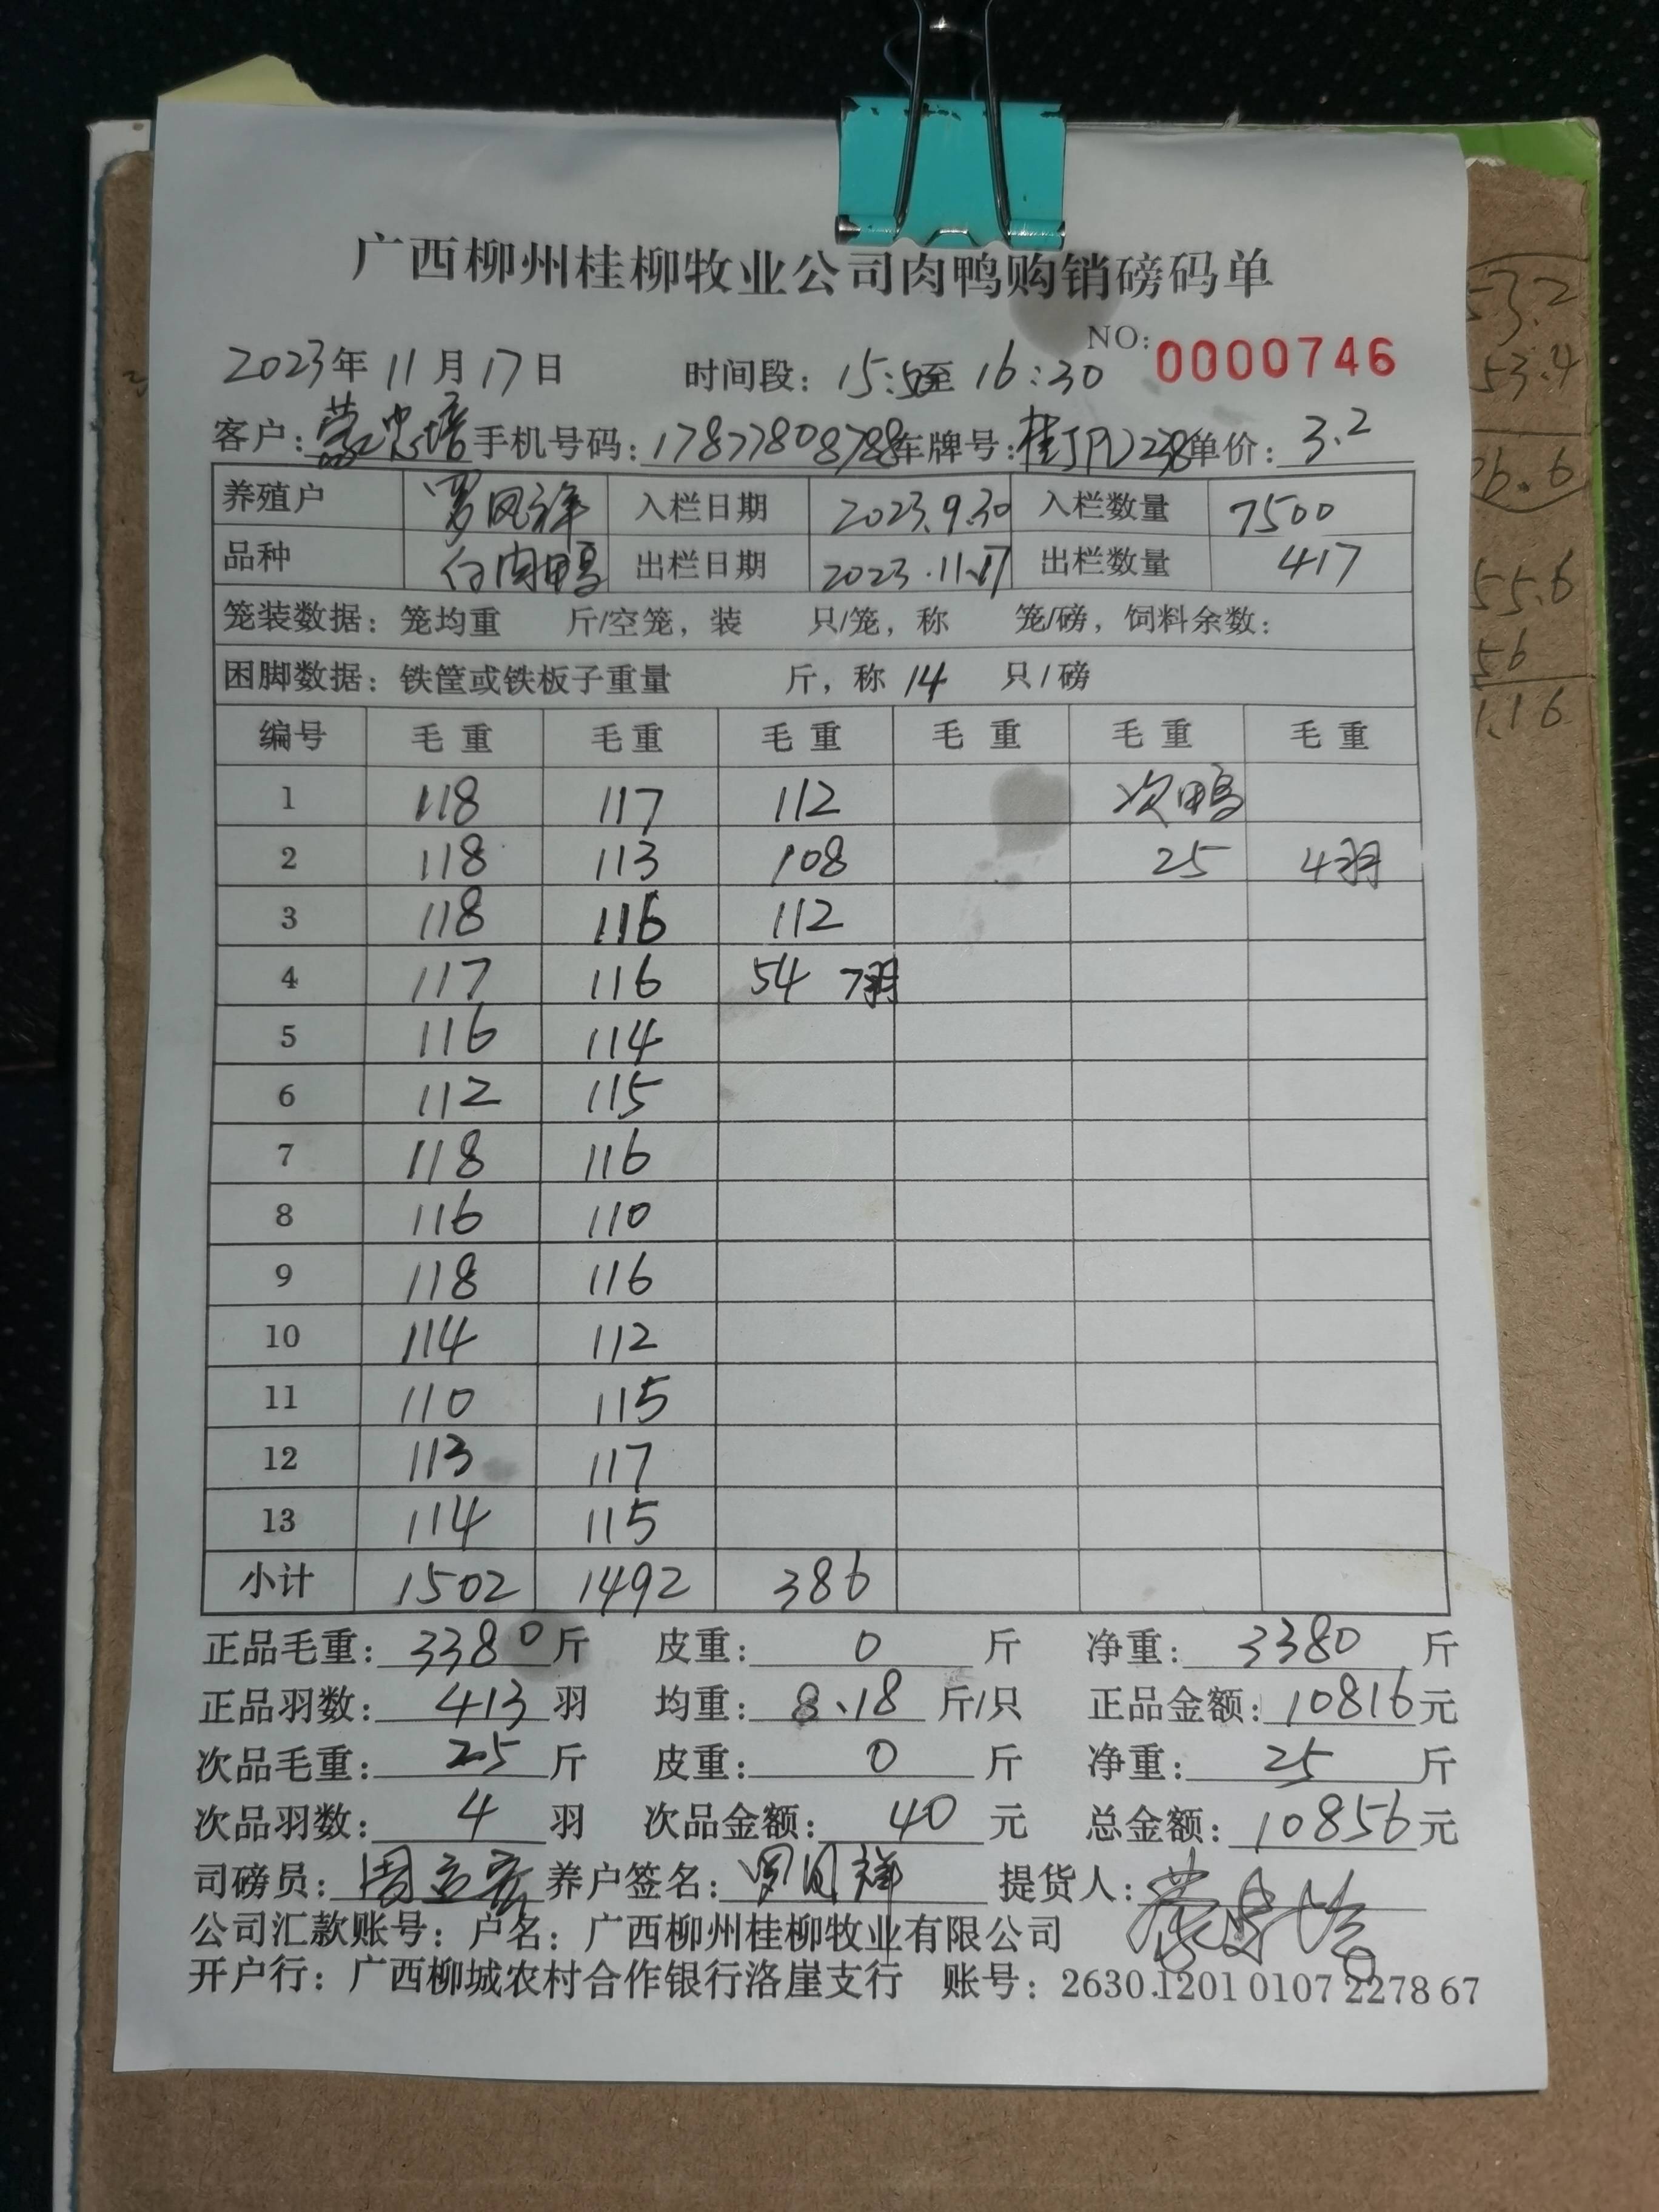 广西柳州桂柳牧业公司肉鸭购销磅码单
NO: 0000746
2023年 11月 17日 时间段: 15:50至 16:30
客户: 蒙忠培 手机号码: 17877808788 车牌号: 单价: 3.2
养殖户 罗凤祥 入栏日期 2023.9.30 入栏数量 7500
品种 白肉鸭 出栏日期 2023.11.17 出栏数量 417
笼装数据: 笼均重 斤/空笼, 装 只/笼, 称 笼/磅, 饲料余数:
困脚数据: 铁筐或铁板子重量 斤, 称 14 只/磅
编号 毛重 毛重 毛重 毛重 毛重 毛重
1 118 117 112 次鸭
2 118 113 108 25 4羽
3 118 116 112
4 117 116 54 7羽
5 116 114
6 112 115
7 118 116
8 116 110
9 118 116
10 114 112
11 110 115
12 113 117
13 114 115
小计 1502 1492 386
正品毛重: 3380 斤 皮重: 0 斤 净重: 3380 斤
正品羽数: 413 羽 均重: 8.18 斤/只 正品金额: 10816元
次品毛重: 25 斤 皮重: 0 斤 净重: 25 斤
次品羽数: 4 羽 次品金额: 40 元 总金额: 10856元
司磅员: 养户签名: 提货人:
公司汇款账号: 户名: 广西柳州桂柳牧业有限公司
开户行: 广西柳城农村合作银行洛崖支行 账号: 2630.1201 0107 2278 67
53.2
53.4
6.6
55.6
56
1.16